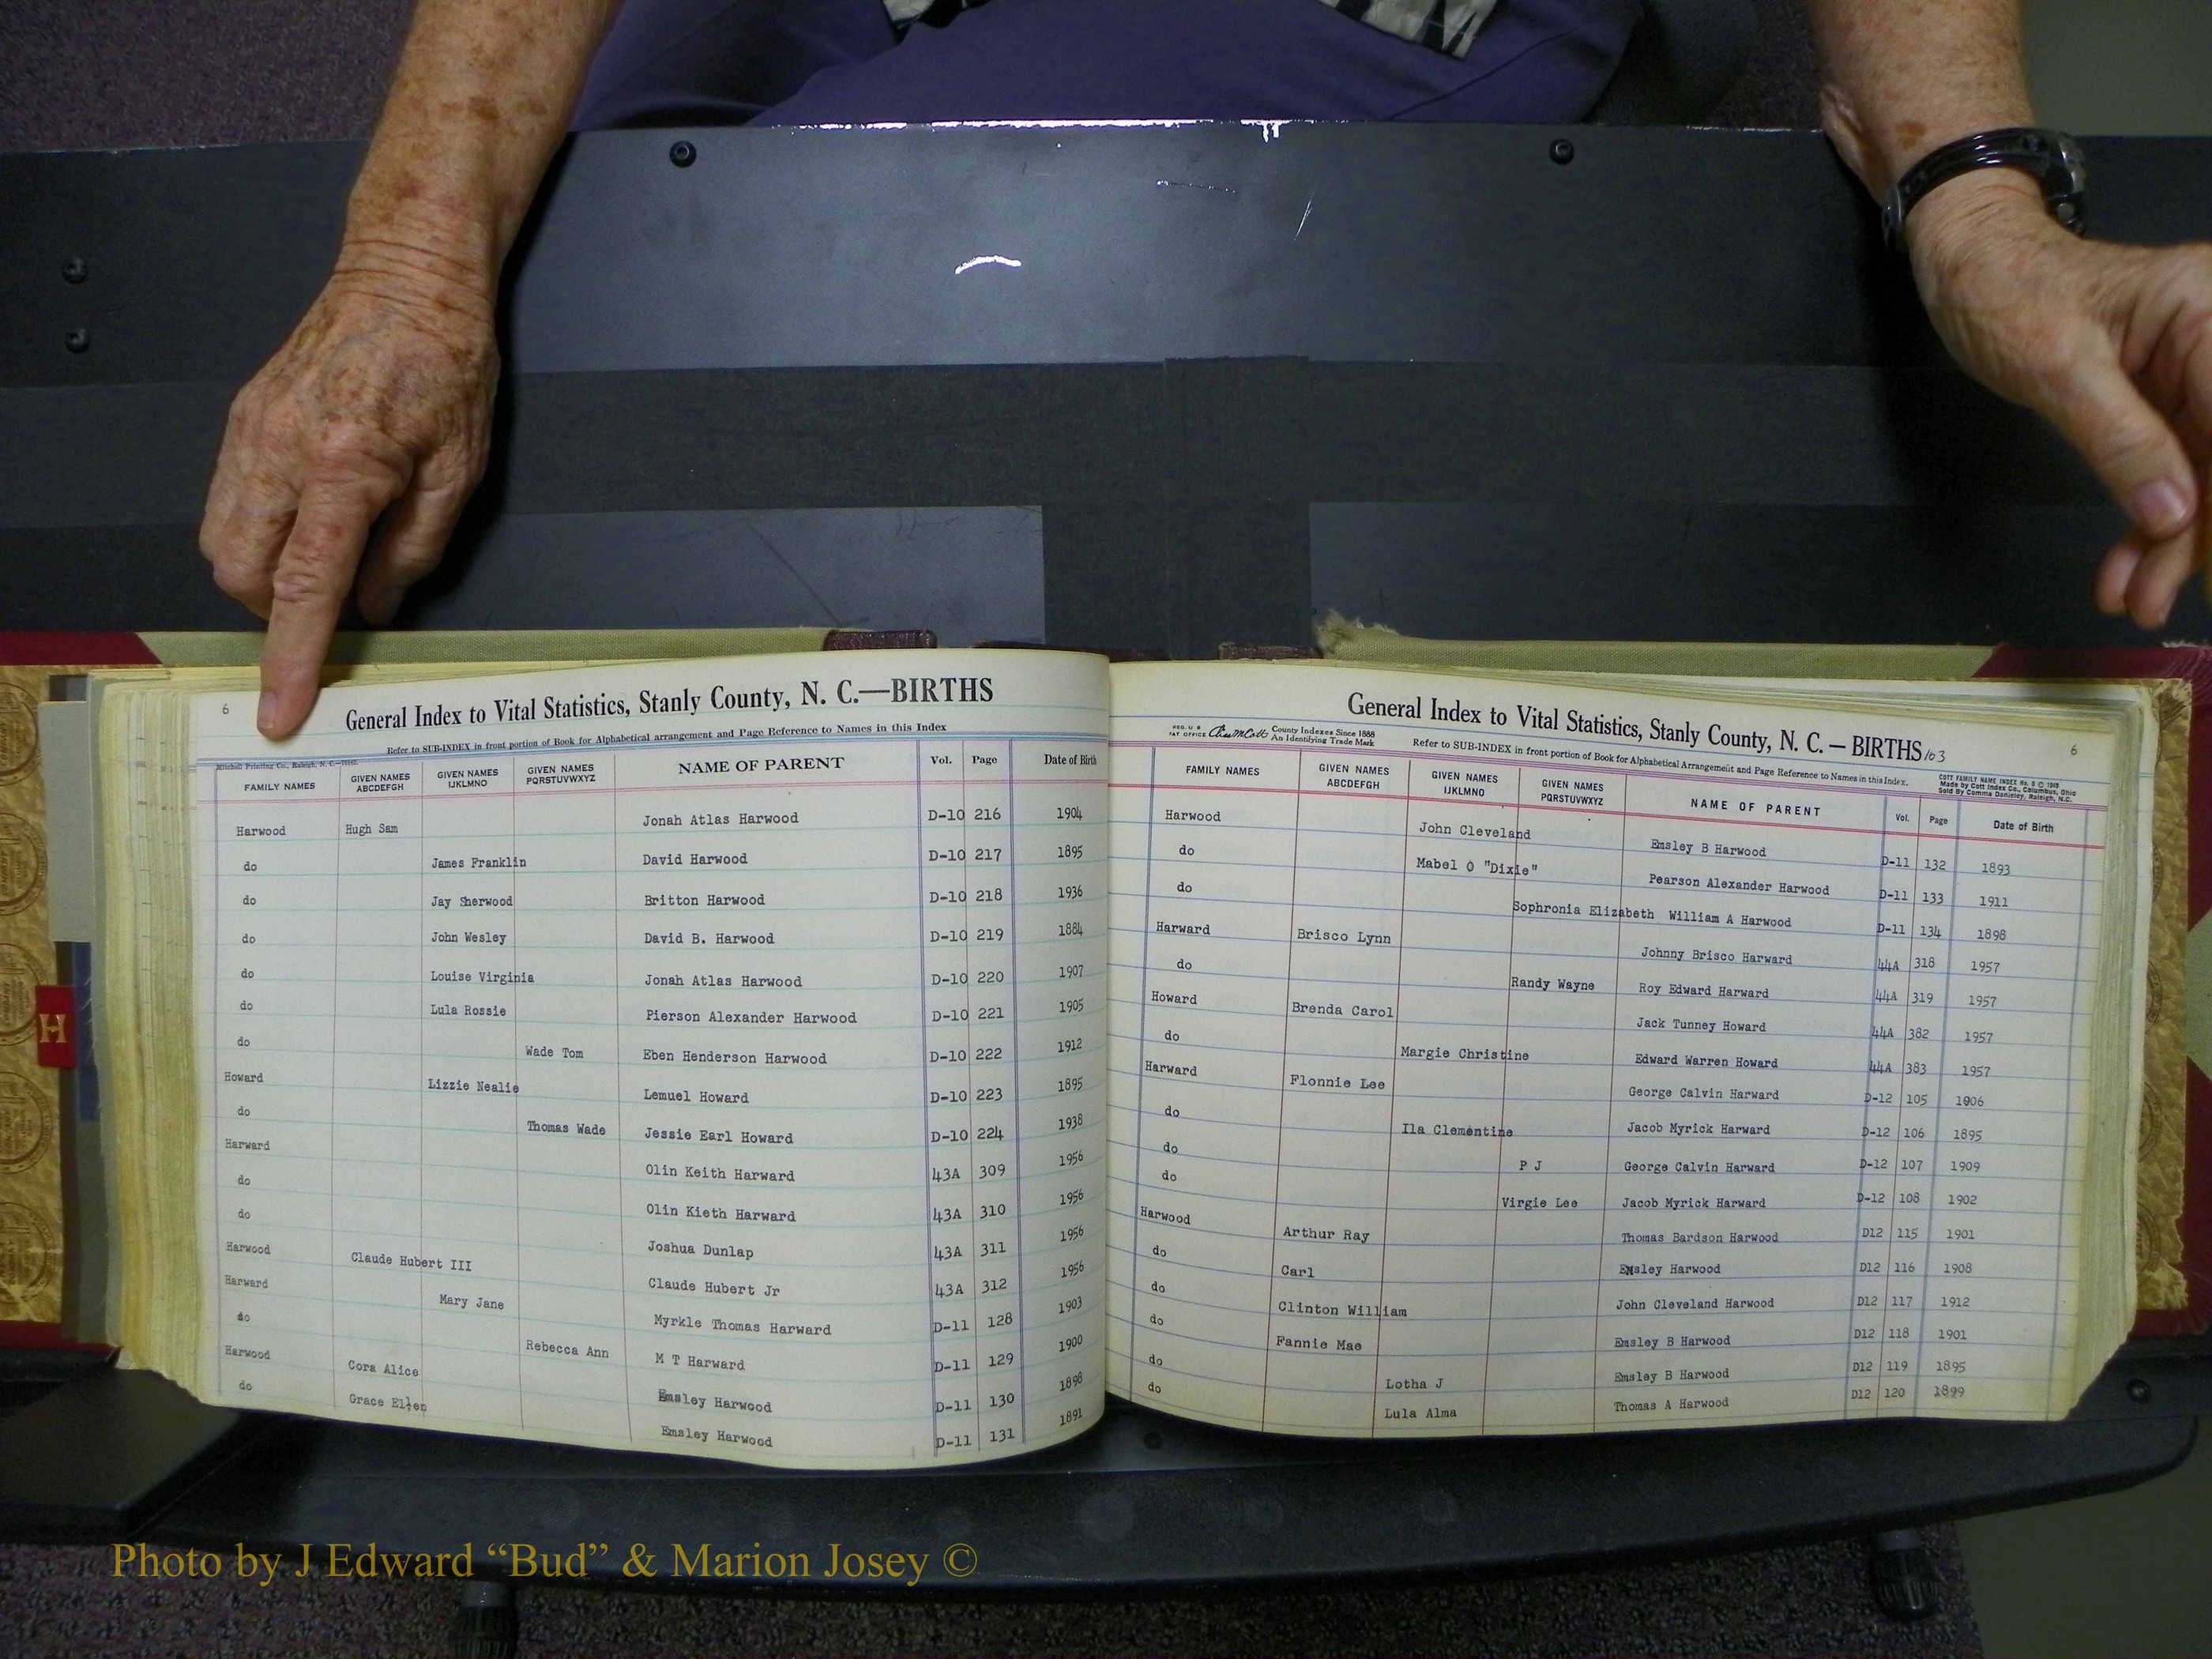 6
General Index to Vital Statistics, Stanly County, N. C.—BIRTHS
Refer to SUB-INDEX in front portion of Book for Alphabetical arrangement and Page Reference to Names in this Index
Mitchell Printing Co., Raleigh, N. C.
FAMILY NAMES GIVEN NAMES ABCDEFGH GIVEN NAMES IJKLMNO GIVEN NAMES PQRSTUVWXYZ NAME OF PARENT Vol. Page Date of Birth
Harwood Hugh Sam Jonah Atlas Harwood D-10 216 1904
do James Franklin David Harwood D-10 217 1895
do Jay Sherwood Britton Harwood D-10 218 1936
do John Wesley David B. Harwood D-10 219 1884
do Louise Virginia Jonah Atlas Harwood D-10 220 1907
do Lula Rossie Pierson Alexander Harwood D-10 221 1905
do Wade Tom Eben Henderson Harwood D-10 222 1912
Howard Lizzie Nealie Lemuel Howard D-10 223 1895
do Thomas Wade Jessie Earl Howard D-10 224 1938
Harward Olin Keith Harward 43A 309 1956
do Olin Kieth Harward 43A 310 1956
do Joshua Dunlap 43A 311 1956
Harwood Claude Hubert III Claude Hubert Jr 43A 312 1956
Harward Mary Jane Myrkle Thomas Harward D-11 128 1903
do Rebecca Ann M T Harward D-11 129 1900
Harwood Cora Alice Emsley Harwood D-11 130 1898
do Grace Ellen Emsley Harwood D-11 131 1891
General Index to Vital Statistics, Stanly County, N. C. — BIRTHS 103
6
REG. U S PAT OFFICE County Indexes Since 1888 An Identifying Trade Mark
Refer to SUB-INDEX in front portion of Book for Alphabetical Arrangement and Page Reference to Names in this Index.
COTT FAMILY NAME INDEX No. 5 © 1949
Made by Cott Index Co., Columbus, Ohio
Sold By Comma Danieley, Raleigh, N.C.
FAMILY NAMES GIVEN NAMES ABCDEFGH GIVEN NAMES IJKLMNO GIVEN NAMES PQRSTUVWXYZ NAME OF PARENT Vol. Page Date of Birth
Harwood John Cleveland Emsley B Harwood D-11 132 1893
do Mabel O "Dixie" Pearson Alexander Harwood D-11 133 1911
do Sophronia Elizabeth William A Harwood D-11 134 1898
Harward Brisco Lynn Johnny Brisco Harward 44A 318 1957
do Randy Wayne Roy Edward Harward 44A 319 1957
Howard Brenda Carol Jack Tunney Howard 44A 382 1957
do Margie Christine Edward Warren Howard 44A 383 1957
Harward Flonnie Lee George Calvin Harward D-12 105 1906
do Ila Clementine Jacob Myrick Harward D-12 106 1895
do P J George Calvin Harward D-12 107 1909
do Virgie Lee Jacob Myrick Harward D-12 108 1902
Harwood Arthur Ray Thomas Bardson Harwood D12 115 1901
do Carl Emsley Harwood D12 116 1908
do Clinton William John Cleveland Harwood D12 117 1912
do Fannie Mae Emsley B Harwood D12 118 1901
do Lotha J Emsley B Harwood D12 119 1895
do Lula Alma Thomas A Harwood D12 120 1899
H
Photo by J Edward “Bud” & Marion Josey ©